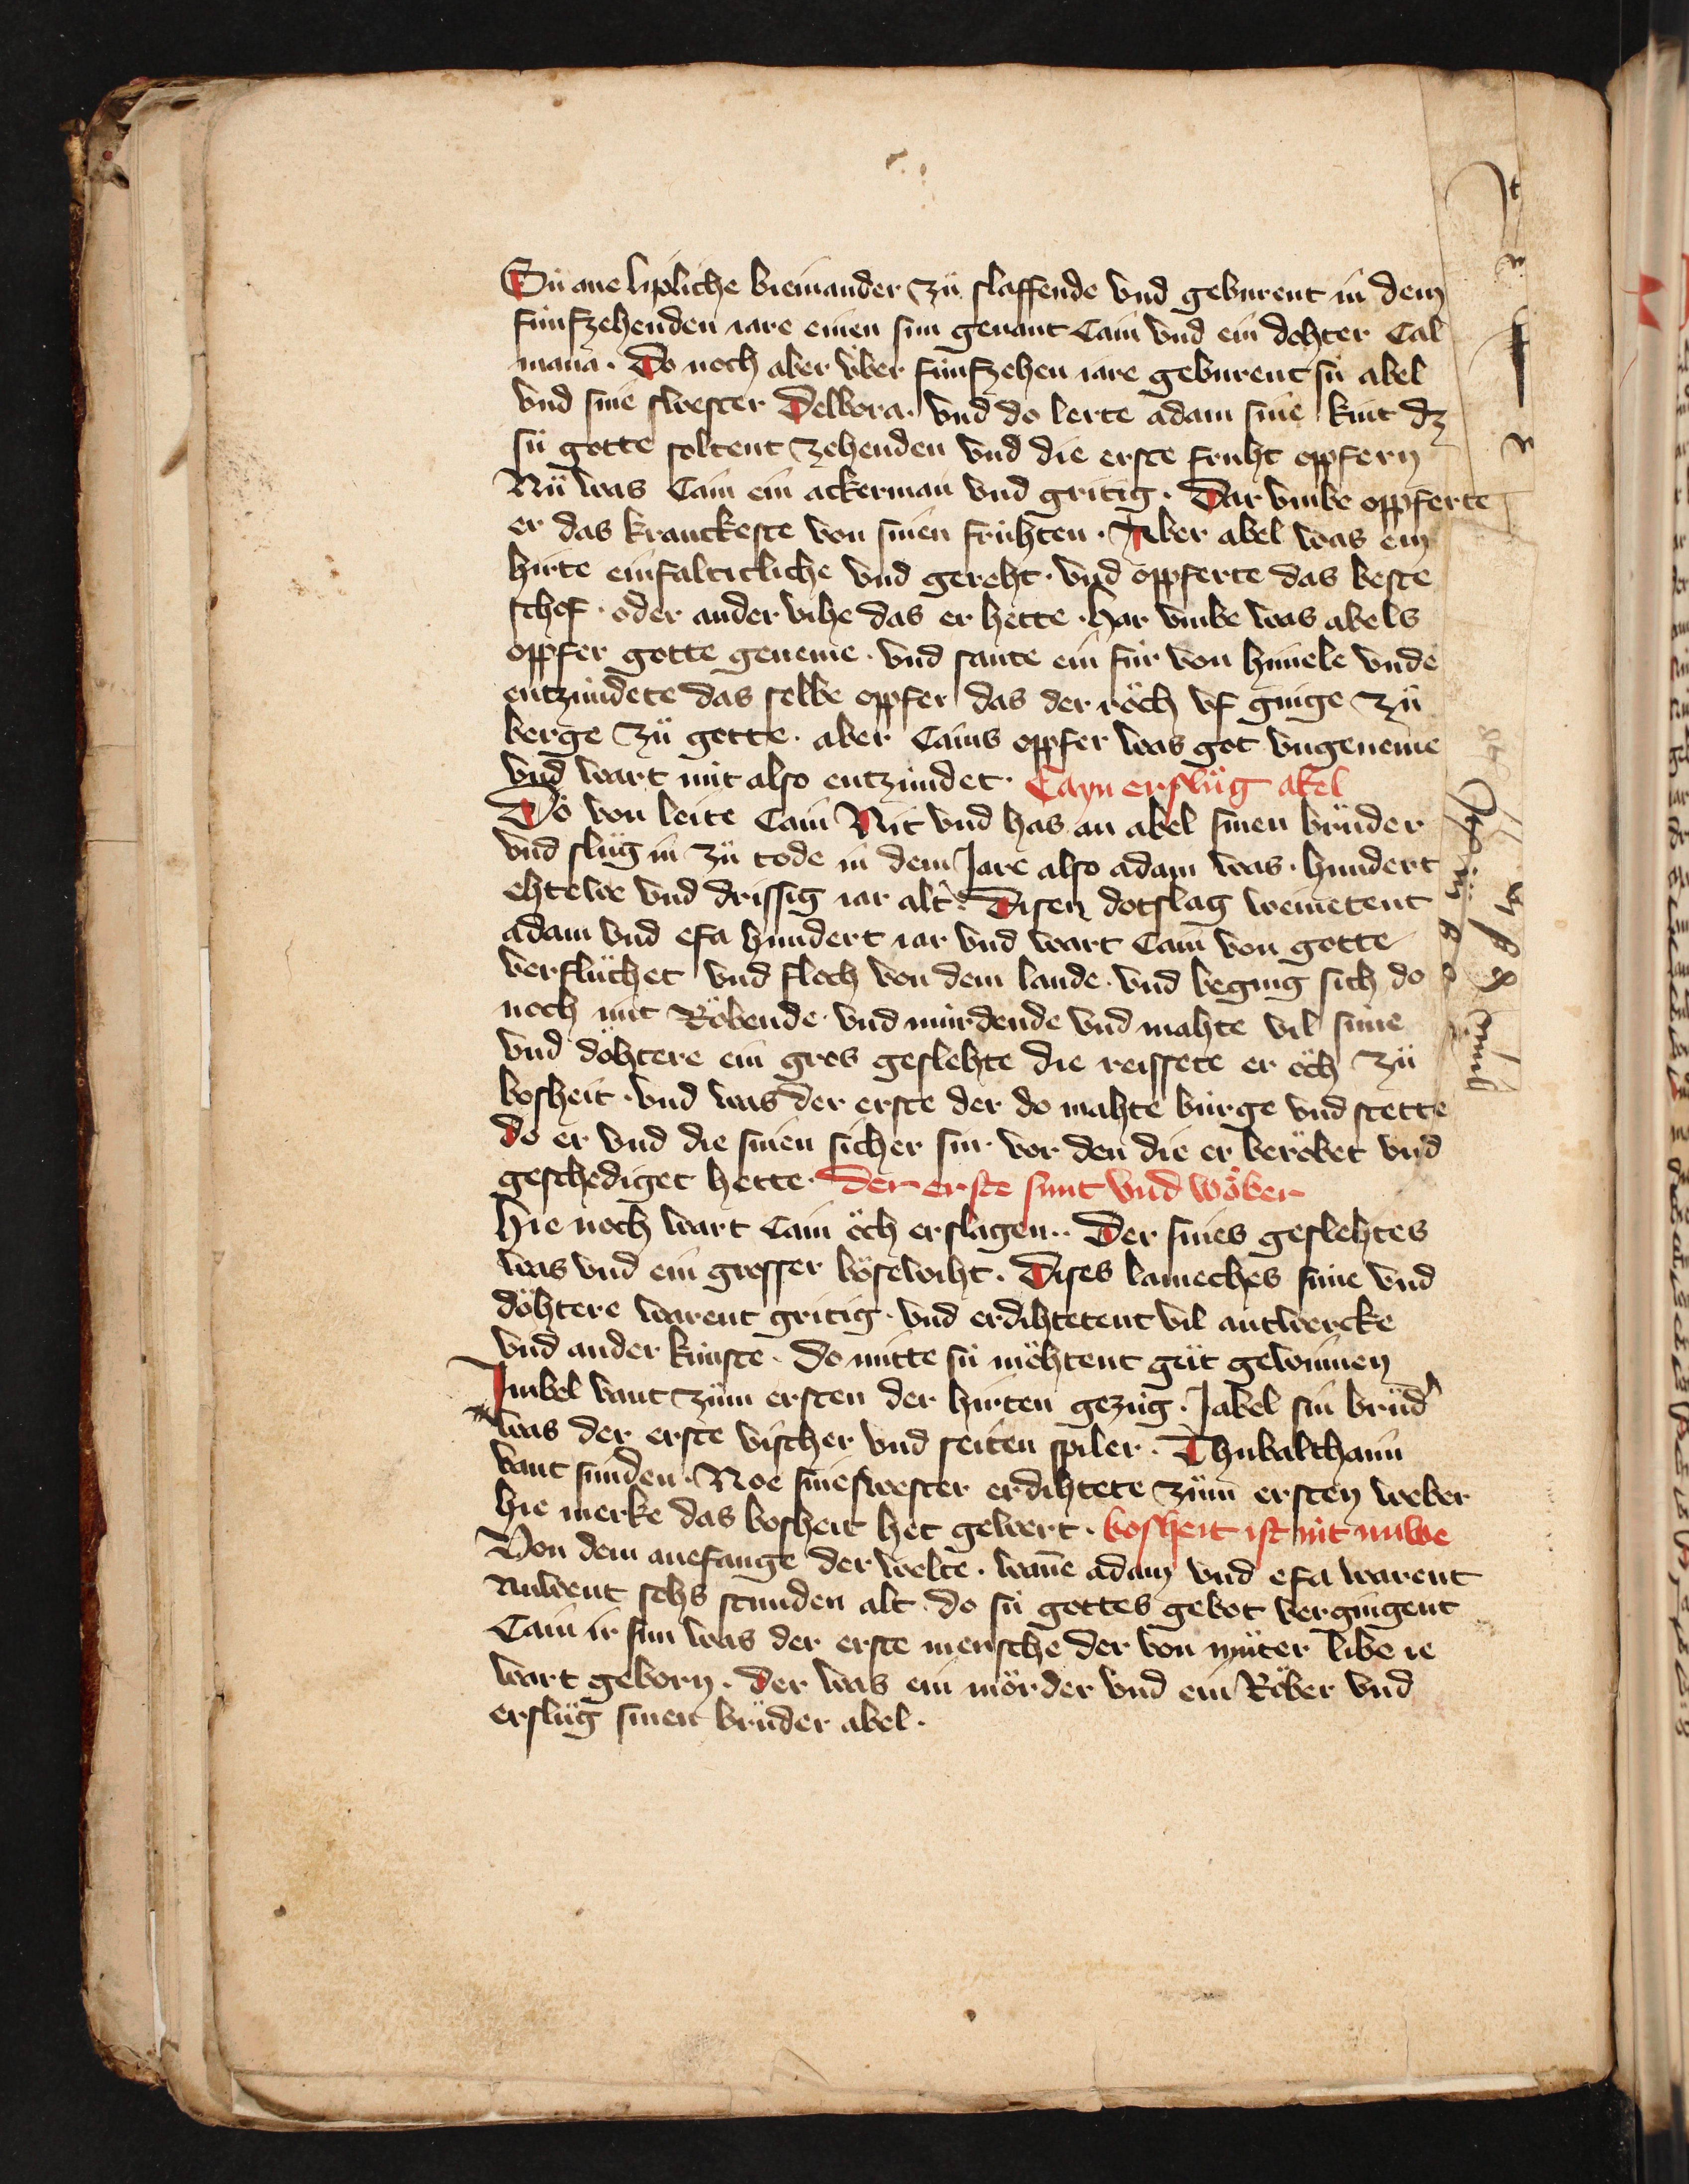 Sü ane lipliche bieinander zü slaffende vnd geburent in dem
fünfzehenden iare einen sun genant Cain vnd ein dohter Cal
mana · Do noch aber über fünfzehen iare geburent sü abel
vnd sine swester Delbora · vnd do lerte adam sine kint dz
sü gotte soltent zehenden vnd die erste fruht opfern
Nü was Cain ein ackerman vnd gritig · Dar vmbe oppferte
er das kranckeste von sinen frühten · Aber abel was ein
hirte einfalticliche vnd gereht · vnd oppferte das beste
schof · oder ander vihe das er hette · har vmbe was abels
oppfer gotte geneme · vnd sante ein für von himele vnde
entzündete das selbe opfer das der röch vf ginge zü
berge zü gotte · aber Cains opfer was got vngeneme
vnd wart nit also entzündet · Cayn erslüg abel
Do von leite Cain Nit vnd has an abel sinen brüder
vnd slüg in zü tode in dem Jare also adam was · hundert
ehtewe vnd drissig iar alt · Disen dotslag weinetent
adam vnd efa hundert iar vnd wart Cain von gotte
verflüchet vnd floch von dem lande · vnd beging sich do
noch mit Röbende · vnd mürdende vnd mahte vil süne
vnd döhtere ein gros geslehte die reissete er öch zü
bosheit · vnd was der erste der do mahte bürge vnd stette
do er vnd die sinen sicher sin · vor den die er beröbet vnd
geschediget hette · Der erste sunt vnd wöber
Hie noch wart Cain öch erslagen · Der sines geslehtes
was vnd ein grosser bösewiht · Dises lameches süne vnd
döhtere warent gritig · vnd erdihtetent vil antwercke
vnd ander künste · do mitte sü möhtent güt gewinnen
Jubel vant züm ersten der hirten gezüg · Jabel sin brüd'
was der erste vischer vnd seiten spiler · Thubalthaim
vant sünden · Noe sine swester erdihtete züm ersten weber
hie merke das bosheit het gewert · bosheit ist nit nuwe
Von dem anefange der welte · wane adam vnd efa warent
Nuwent sehs stunden alt do sü gottes gebot vergingent
Cain ir sun was der erste mensche der von müter libe ie
wart geborn · der was ein mörder vnd ein Röber vnd
erslüg sinen brüder abel ·